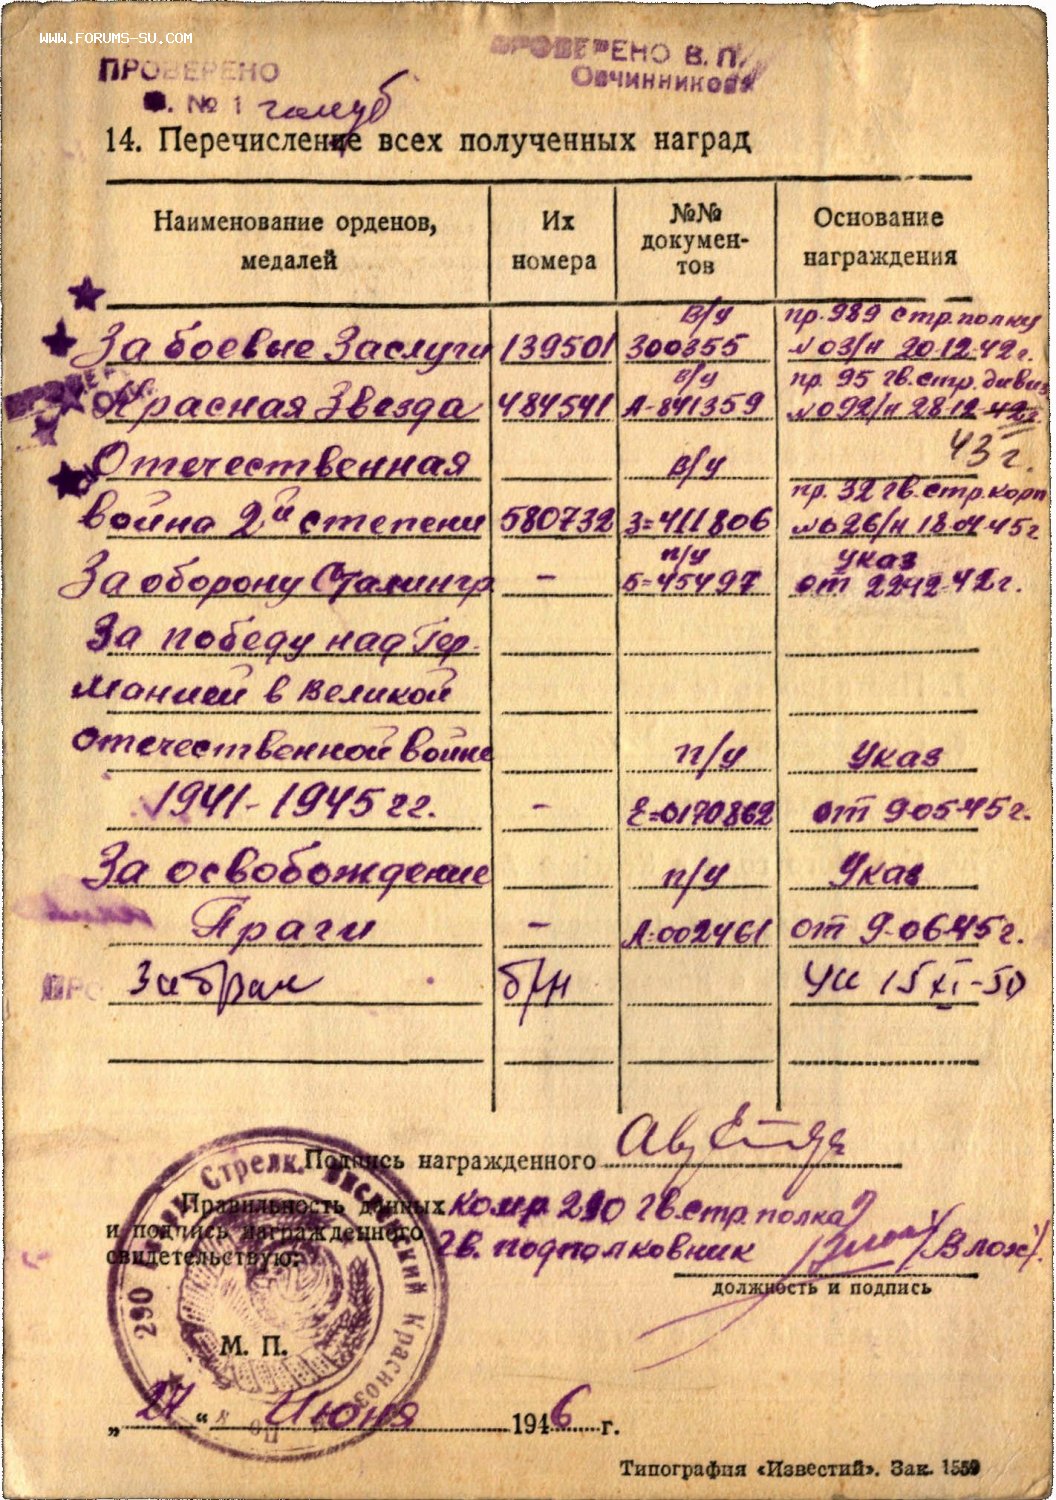 WWW.FORUMS-SU.COM
ПРОВЕРЕНО
№ 1
ПРОВЕРЕНО В. П.
Овчинникова
14. Перечисление всех полученных наград
Наименование орденов, медалей Их номера №№ документов Основание награждения
За боевые Заслуги 139501 в/у 300355 пр. 989 стр. полку №03/н 20.12.42г.
Красная Звезда 484541 в/у А-841359 пр. 95 гв. стр. дивиз №092/н 28.12.42г. 43г.
Отечественная в/у
война 2й степени 580732 З=411806 пр. 32 гв. стр. корп №026/н 18.04.45г
За оборону Сталингр. - п/у Б=45497 указ от 22.12.42г.
За победу над Гер-
манией в великой
отечественной войне п/у Указ
1941-1945 гг. - Е=0170862 от 9.05.45г.
За освобождение п/у Указ
Праги - А-002461 от 9.06.45г.
б/н 15 XI-50
Подпись награжденного
Правильность данных комр 290 гв. стр. полка
и подпись награжденного
свидетельствую: гв. подполковник
должность и подпись
290 Стрелк. Висленский Красноз
М. П.
„27“ Июня 1946 г.
Типография «Известий». Зак. 1559